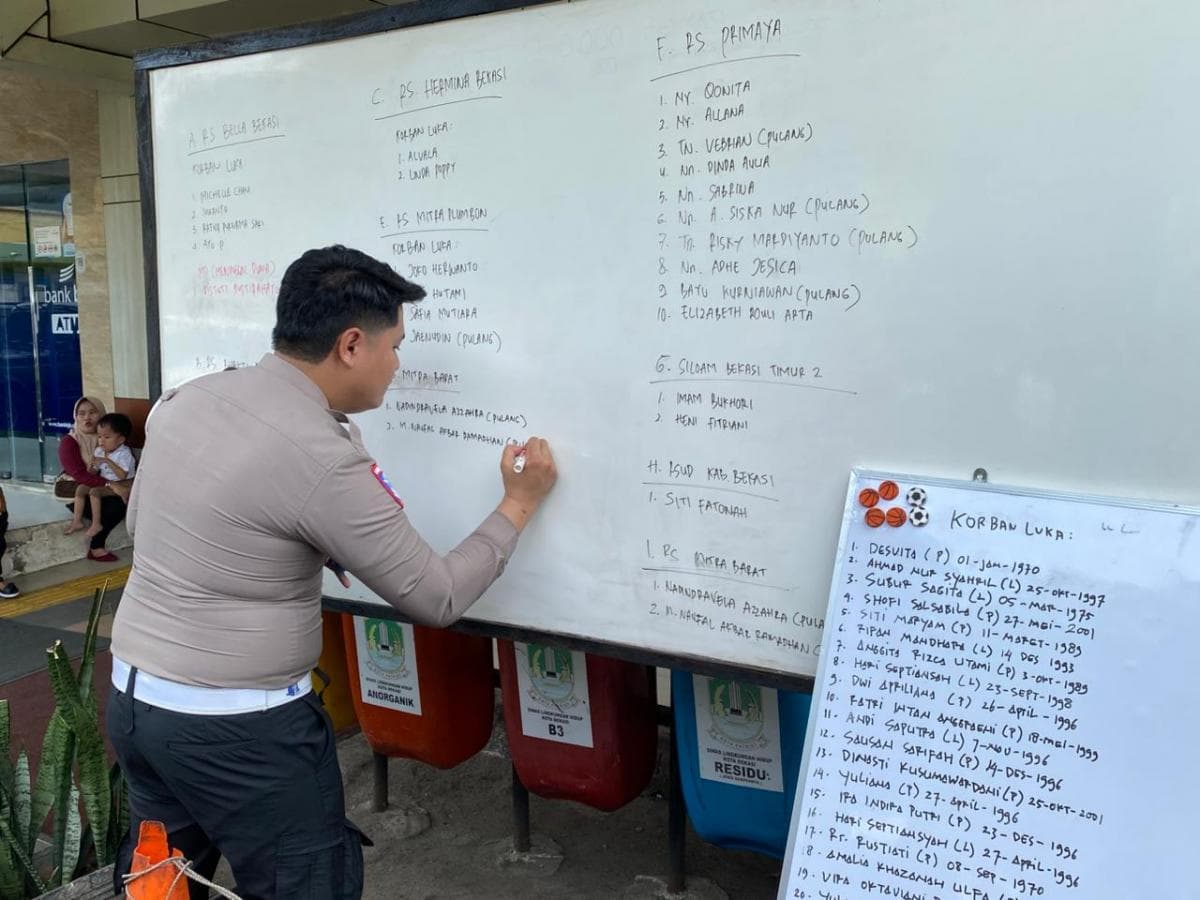 A. RS BELLA BEKASI
KORBAN LUKA
1. MICHELLE CHAN
2.
3.
4. AYU P
MD (MENINGGAL DUNIA)
1.
B. RS
C. RS. HERMINA BEKASI
KORBAN LUKA:
1. ALVALA
2. LINDA POPPY
E. RS MITRA PLUMBON
KORBAN LUKA:
JOKO HERWANTO
HUTAMI
SAFIA MUTIARA
JAENUDIN (PULANG)
MITRA BARAT
1. NADINDRAVELA AZZAHRA (PULANG)
2. M. NAUFAL AKBAR RAMADHAN (PUL
F. RS PRIMAYA
1. NY. QONITA
2. NY. ALLANA
3. TN. VEBRIAN (PULANG)
4. NN. DINDA AULIA
5. NN. SABRINA
6. NN. A. SISKA NUR (PULANG)
7. TN. RISKY MARDIYANTO (PULANG)
8. NN. ADHE JESICA
9. BAYU KURNIAWAN (PULANG)
10. ELIZABETH ROULI ARTA
G. SILOAM BEKASI TIMUR 2
1. IMAM BUKHORI
2. HENI FITRIANI
H. RSUD KAB. BEKASI
1. SITI FATONAH
I. RS MITRA BARAT
1. NADINDRAVELA AZZAHRA (PULA
2. M. NAUFAL AKBAR RAMADHAN (
KORBAN LUKA:
1. DESVITA (P) 01-JAN-1970
2. AHMAD NUR SYAHRIL (L) 25-OKT-1997
3. SUBUR SAGITA (L) 05-MAR-1975
4. SHOFI SALSABILA (P) 27-MEI-2001
5. SITI MARYAM (P) 11-MARET-1989
6. RIPAN MANDHARA (L) 14 DES 1993
7. ANGGITA RIZCA UTAMI (P) 3-OKT-1989
8. HARI SEPTIANSAH (L) 23-SEPT-1998
9. DWI APRILIANA (P) 26-APRIL-1996
10. RATRI INTAN ANGGRAENI (P) 18-MEI-1999
11. ANDI SAPUTRA (L) 7-NOV-1996
12. SAUSAN SARIFAH (P) 14-DES-1996
13. DINASTI KUSUMAWARDANI (P) 25-OKT-2001
14. YULIANA (P) 27-APRIL-1996
15. IRA INDIRA PUTRI (P) 23-DES-1996
16. HARI SEPTIANSYAH (L) 27-APRIL-1996
17. RR. RUSTIATI (P) 08-SEP-1970
18. AMALIA KHAZANAH ULFA
19. VIRA OKTAVIANI
20. YUL
bank b
ATM
DINAS LINGKUNGAN HIDUP
KOTA BEKASI
ANORGANIK
DINAS LINGKUNGAN HIDUP
KOTA BEKASI
B3
DINAS LINGKUNGAN HIDUP
KOTA BEKASI
RESIDU